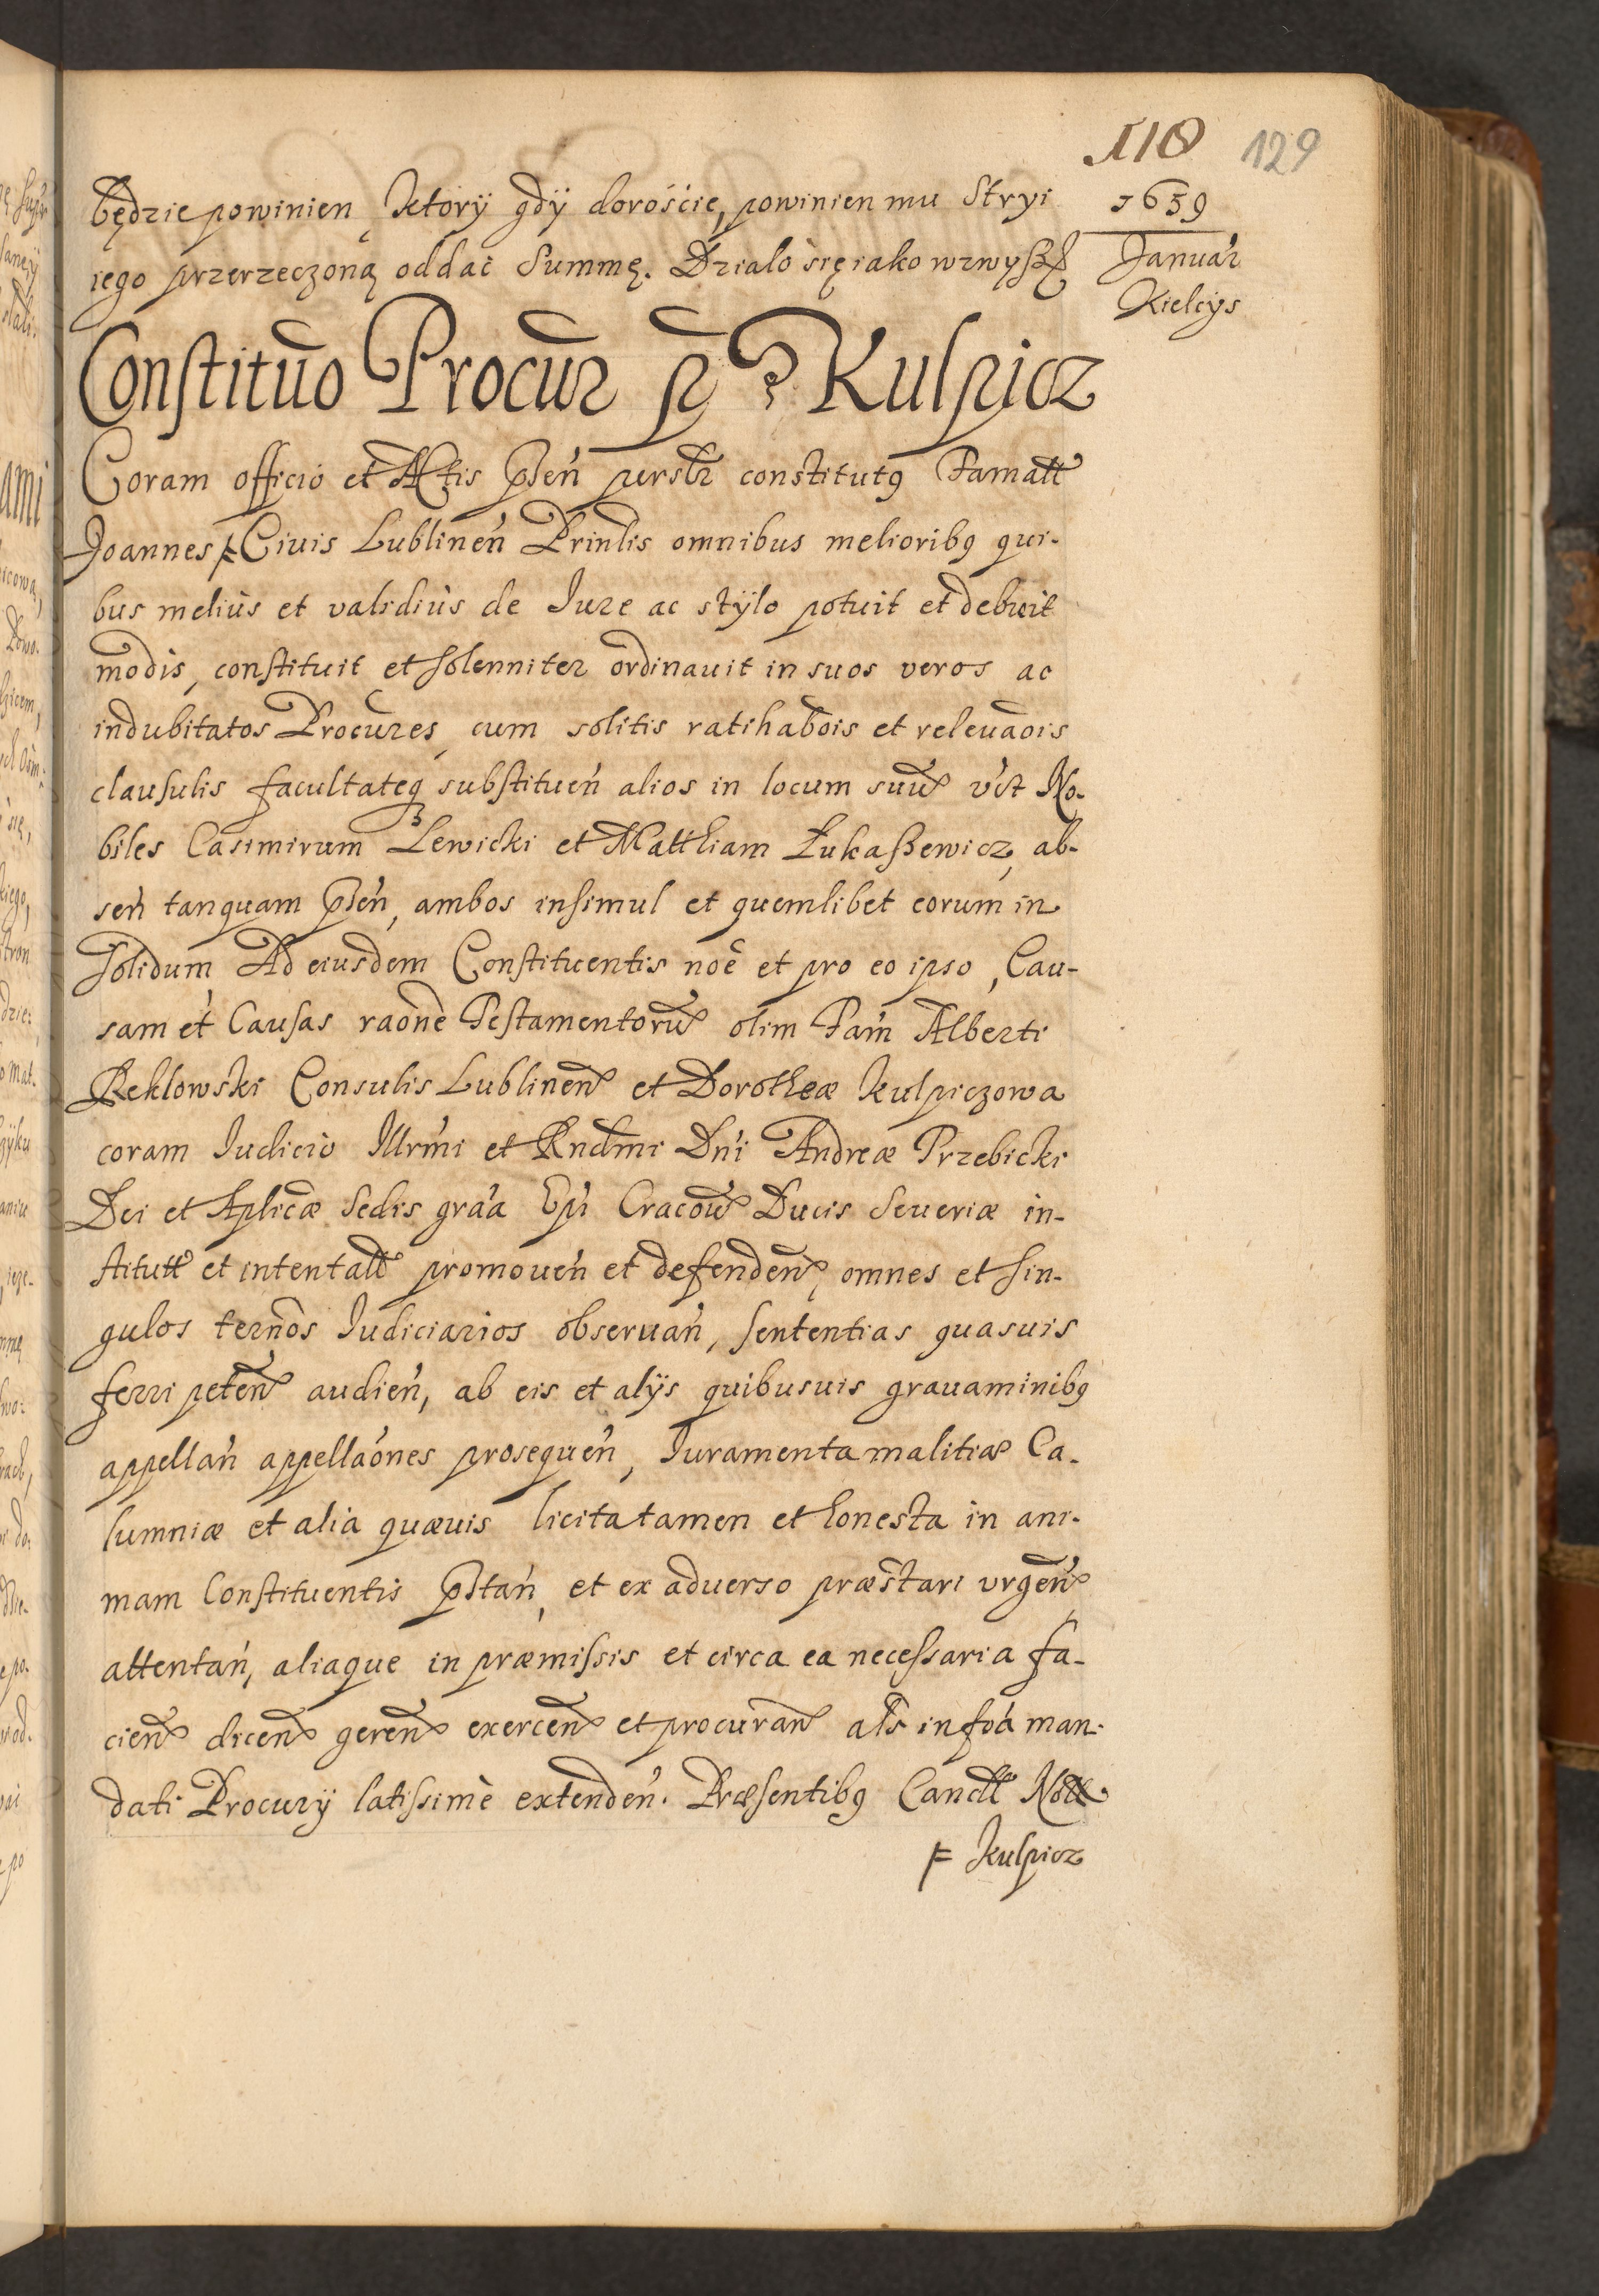 118 129
będzie powinien, ktory gdÿ doroście, powinien mu Stryi
1659
iego przerzeczoną oddać Summę. Działo się iako wzwyßz
Januar
Kielcÿs
Constituo Procur p Kulpicz
Coram officio et Actis psen persltr constitutꝯ Famatt
Joannes ⌿ Ciuis Lublinen Prinlis omnibus melioribꝯ qui-
bus meliùs et validiùs de Iure ac stÿlo potuit et debuit
modis, constituit et solenniter ordinauit in suos veros ac
indubitatos Procures, cum solitis ratihabois et releuaois
clausulis facultateqꝫ substituen alios in locum suum vst No-
biles Casimirum Lewicki et Matthiam Łukaßewicz, ab-
sen tanquam psen, ambos insimul et quemlibet eorum in
solidum Ad eiusdem Constituentis noe et pro eo ipso, Cau-
sam et Causas raone Testamentoru olim Fam Alberti
Reklowski Consulis Lublinen et Dorotheæ Kulpiczowa
coram Iudicio Illrmi et Rndmi Dni Andreæ Trzebicki
Dei et Aplicæ Sedis graa Epi Cracou Ducis Seueriæ in-
stitutt et intentatt promouen et defenden, omnes et sin-
gulos ternos Iudiciarios obseruan, sententias quasuis
ferri peten audien, ab eis et alÿs quibusuis grauaminibꝯ
appellan appellaones prosequen, Iuramenta malitiæ Ca-
lumniæ et alia quæuis licita tamen et honesta in ani-
mam Constituentis pstan, et ex aduerso præstari vrgen
attentan, aliaque in præmissis et circa ea necessaria fa-
cien dicen geren exercen et procuran als in foa man-
dati Procurÿ latissimè extenden. Præsentibꝯ Canctt Nott
⌿ Kulpicz